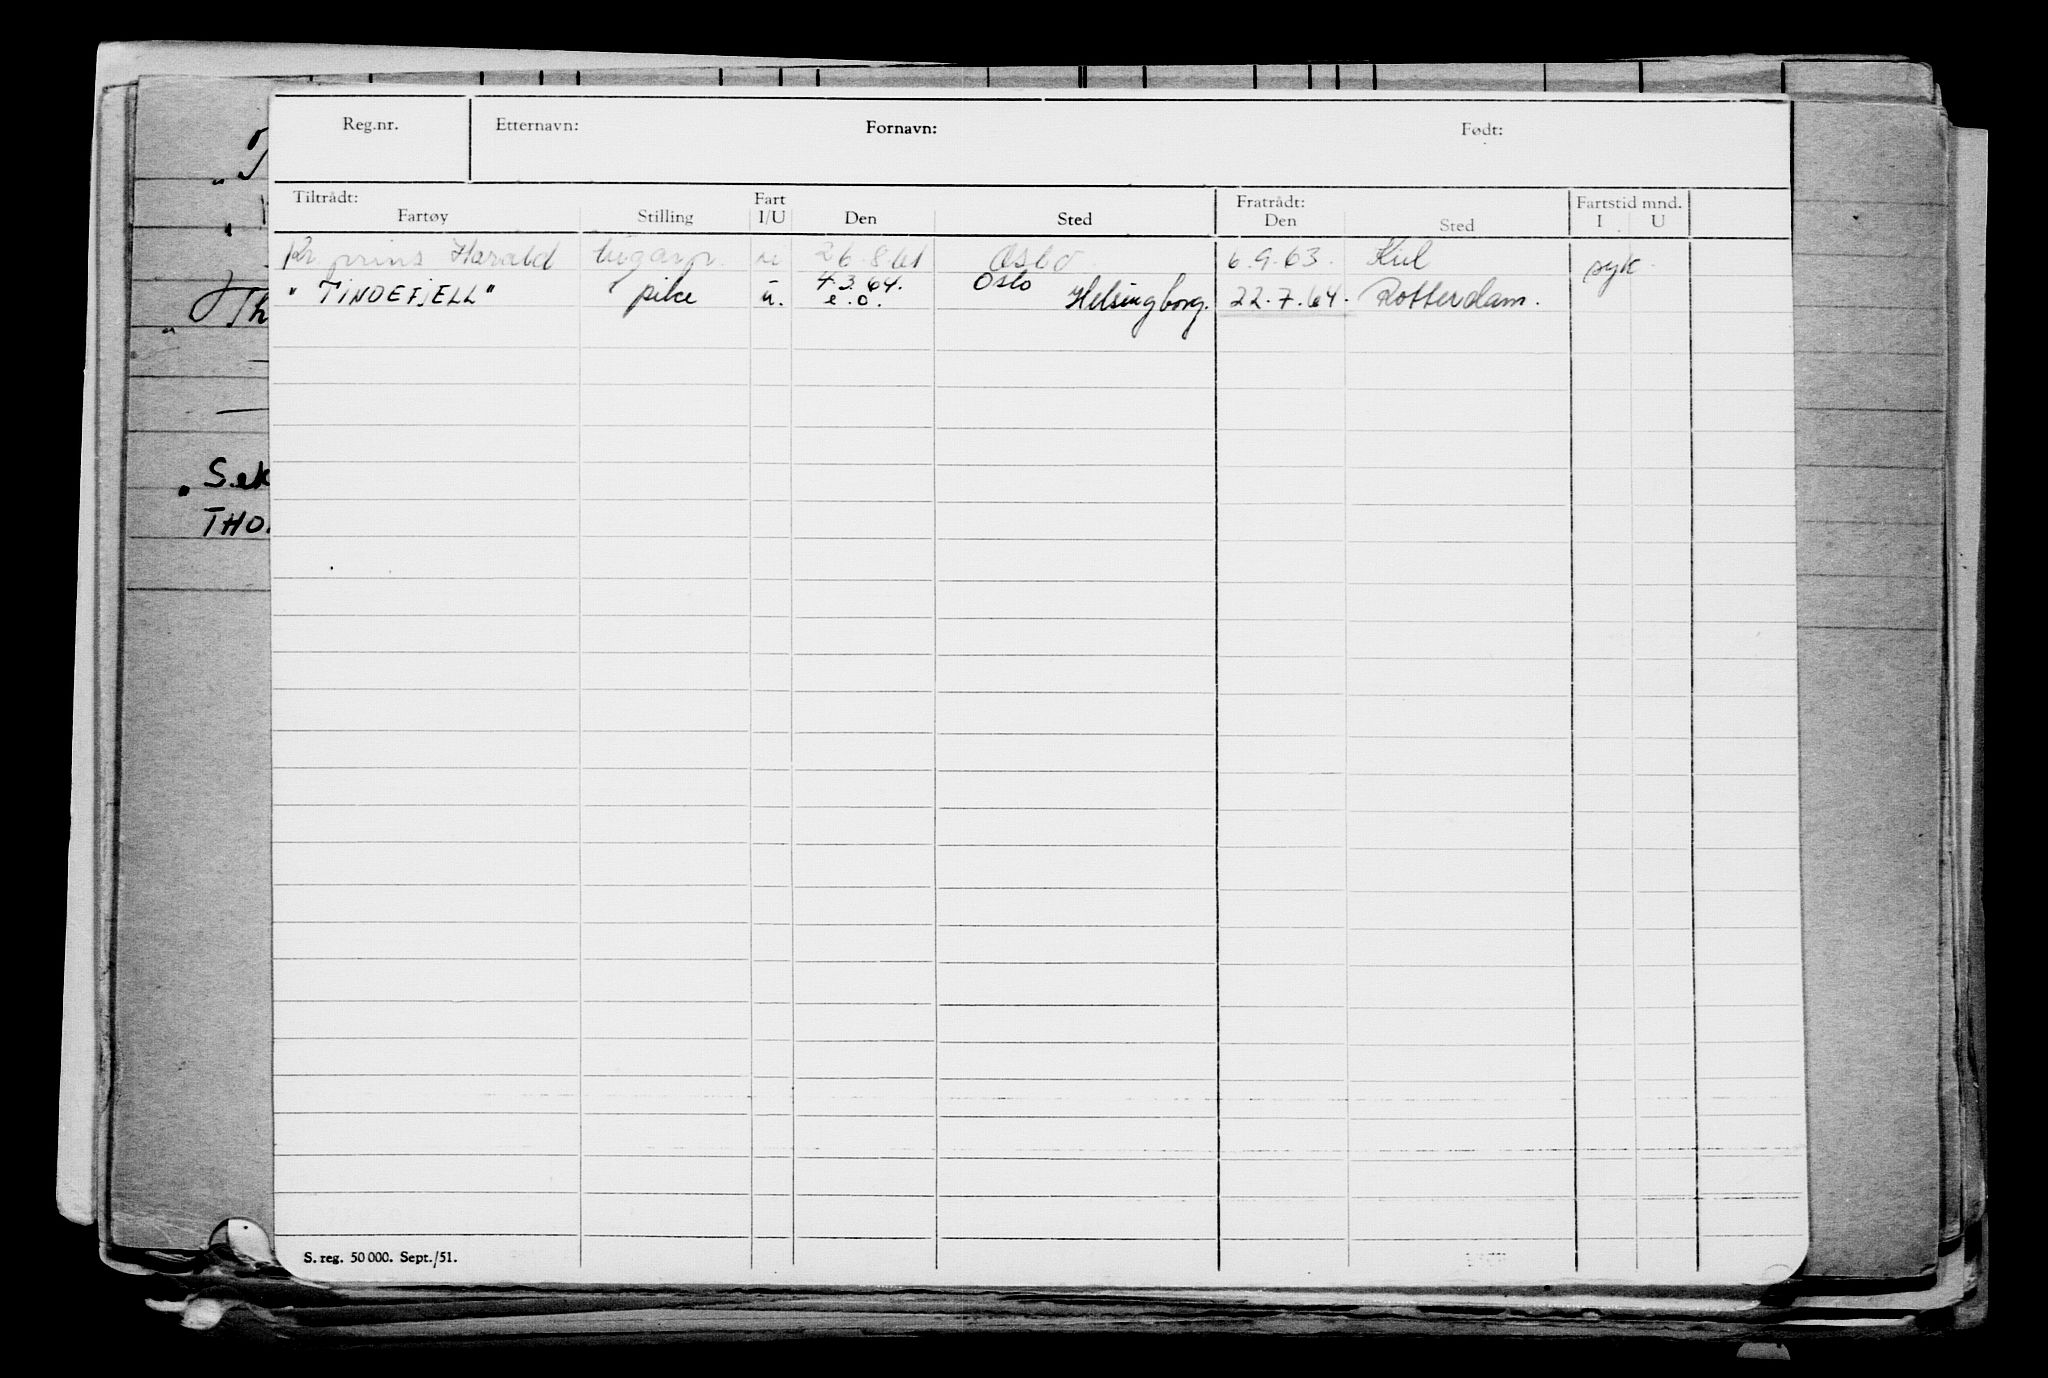 Reg.nr. Etternavn: Fornavn: Født:
Tiltrådt: Fart Fratrådt: Fartstid mnd.
Fartøy Stilling I/U Den Sted Den Sted I U
Kr. prins Harald u 26.8.61 Oslo 6.9.63. Kiel syk.
"TINDEFJELL" pike u. 4.3.64. Oslo
e.o. Helsingborg. 22.7.64. Rotterdam.
Th
Sek
THO.
S. reg. 50 000. Sept./51.